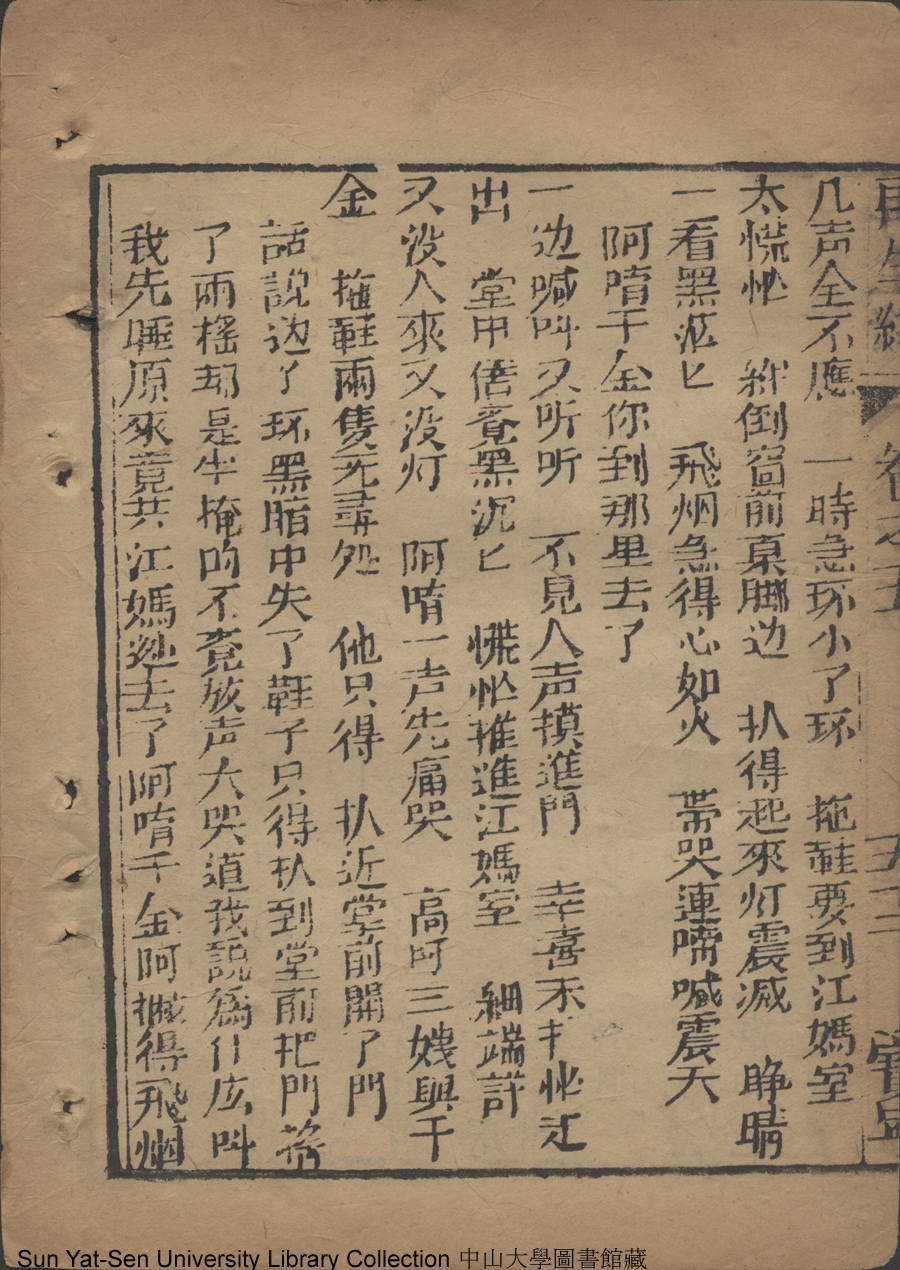 再生緣 卷之五 五十二 寶
几声全不應　一時急环小了环　拖鞋要到江媽室
太慌忙　絆倒窗前桌脚边　扒得起來灯震滅　睁睛
一看黑茫匕　飛烟急得心如火　帯哭連啼喊震天
阿唷千金你到那里去了
一边喊叫又听听　不見人声摸進門　幸喜禾 忙迋
出　堂中借竟黑沉匕　慌忙推進江媽室　細端詳
又没人來又没灯　阿唷一声先痛哭　高呵三嫂與千
金　拖鞋兩隻无尋処　他只得　扒近堂前開了門
話說边了环黑暗中失了鞋子只得扒到堂前把門
了兩搖却是半掩的不竟放声大哭道我説為什庅叫
我先睡原來竟共江媽逃去了阿唷千金阿 得飛烟
Sun Yat-Sen University Library Collection 中山大學圖書館藏